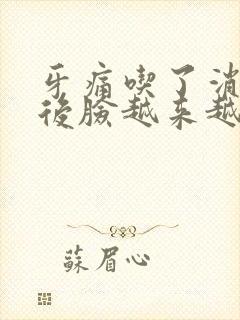 牙痛喫了消
後臉越来越
蘇眉心